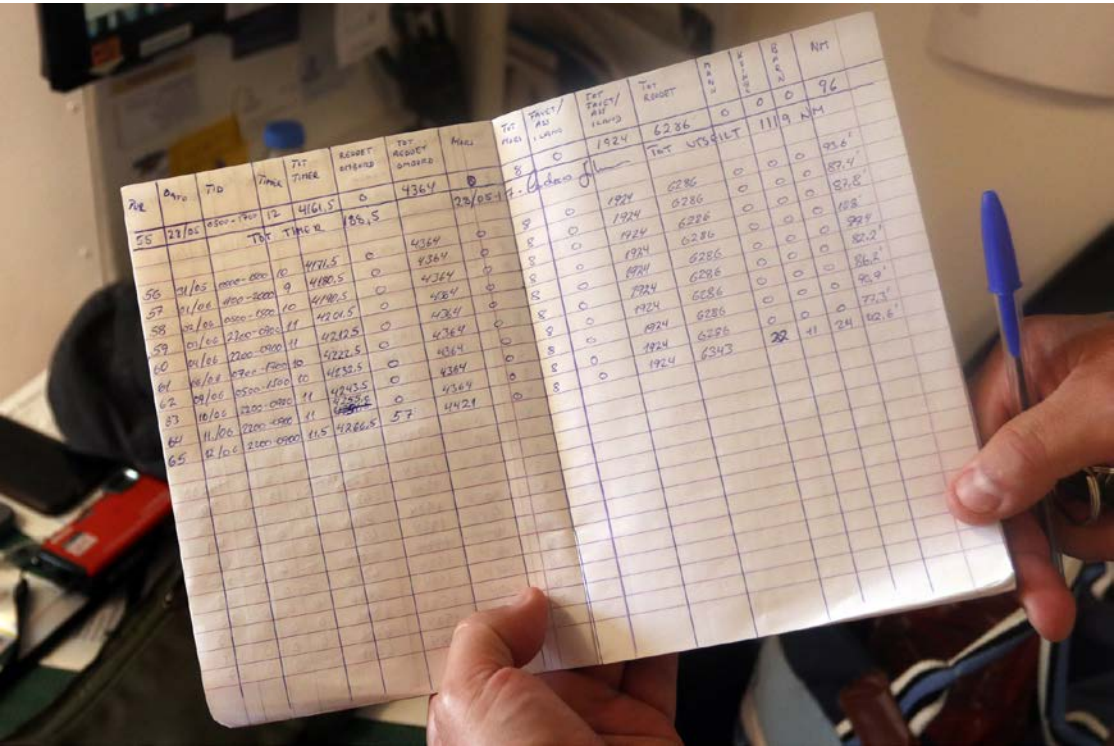 DATO TID TIMER TOT TIMER REDDET OMBORD TOT REDDET OMBORD MORS TOT MORS TAUET/ASS ILAND TOT TAUET/ASS ILAND TOT REDDET MANN KVINNE BARN NM
55 28/05 12 4161,5 0 4364 0 8 0 1924 6286 0 0 0 96
TOT TIMER 188,5 28/05-17 TOT UTSEILT 1119 NM
56 31/05 10 4171,5 0 4364 0 8 0 1924 6286 0 0 0 93.6'
57 01/06 9 4180,5 0 4364 0 8 0 1924 6286 0 0 0 87.4'
58 02/06 0500-1500 10 4190,5 0 4364 0 8 0 1924 6286 0 0 0 87.8'
59 03/06 2200-0900 11 4201,5 0 4364 0 8 0 1924 6286 0 0 0 108'
60 04/06 2200-0900 11 4212,5 0 4364 0 8 0 1924 6286 0 0 0 99.4
61 0700-1700 10 4222,5 0 4364 0 8 0 1924 6286 0 0 0 82.2'
62 09/06 0500-1500 10 4232,5 0 4364 0 8 0 1924 6286 0 0 0 86.2'
63 10/06 2200-0900 11 4243,5 0 4364 0 8 0 1924 6286 0 0 0 90.9'
64 11/06 2200-0900 11 0 4364 0 8 0 1924 6286 0 0 0 77.3'
65 12/06 2200-0900 11.5 4266,5 57 4421 0 8 0 1924 6343 22 11 24